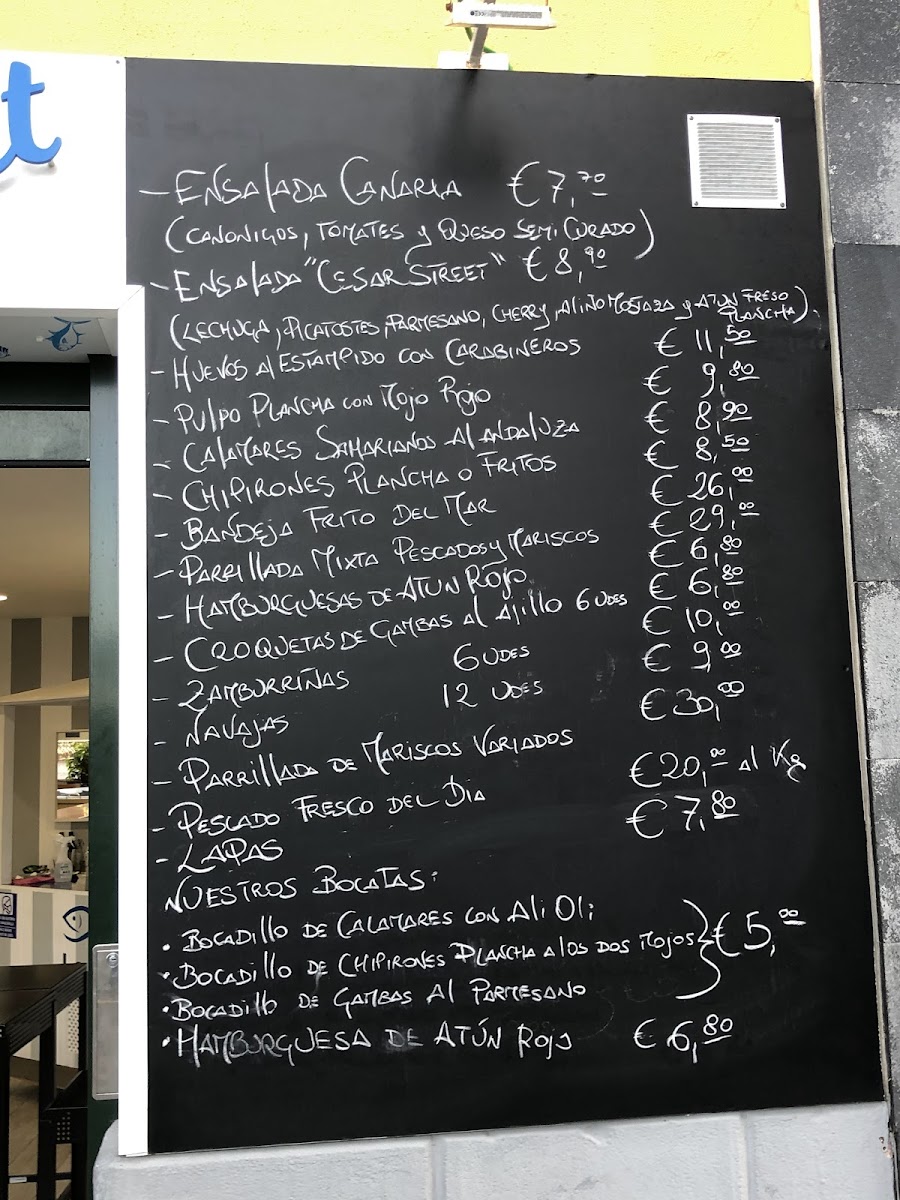 t
- ENSALADA CANARIA €7,70
(CANONIGOS, TOMATES y QUESO SEMI CURADO)
- ENSALADA "CESAR STREET" €8,90
(LECHUGA, PICATOSTES, PARMESANO, CHERRY, ALIÑO MOSTAZA y ATÚN FRESO PLANCHA).
- HUEVOS AL ESTAMPIDO CON CARABINEROS € 11,50
- PULPO PLANCHA CON MOJO ROJO € 9,80
- CALAMARES SAHARIANOS AL ANDALUZA € 8,90
- CHIPIRONES PLANCHA O FRITOS € 8,50
- BANDEJA FRITO DEL MAR € 26,00
- PARRILLADA MIXTA PESCADOS y MARISCOS € 29,00
- HAMBURGUESAS DE ATUN ROJO € 6,80
- CROQUETAS DE GAMBAS AL AJILLO 6 UDES € 6,80
- ZAMBURRIÑAS 6 UDES € 10,00
- NAVAJAS 12 UDES € 9,00
- PARRILLADA DE MARISCOS VARIADOS € 30,00
- PESCADO FRESCO DEL DIA € 20,00 al Kg
- LAPAS € 7,80
NUESTROS BOCATAS:
• BOCADILLO DE CALAMARES CON Ali Oli
• BOCADILLO DE CHIPIRONES PLANCHA A LOS DOS MOJOS } € 5,00
• BOCADILLO DE GAMBAS AL PARMESANO
• HAMBURGUESA DE ATÚN ROJO € 6,80